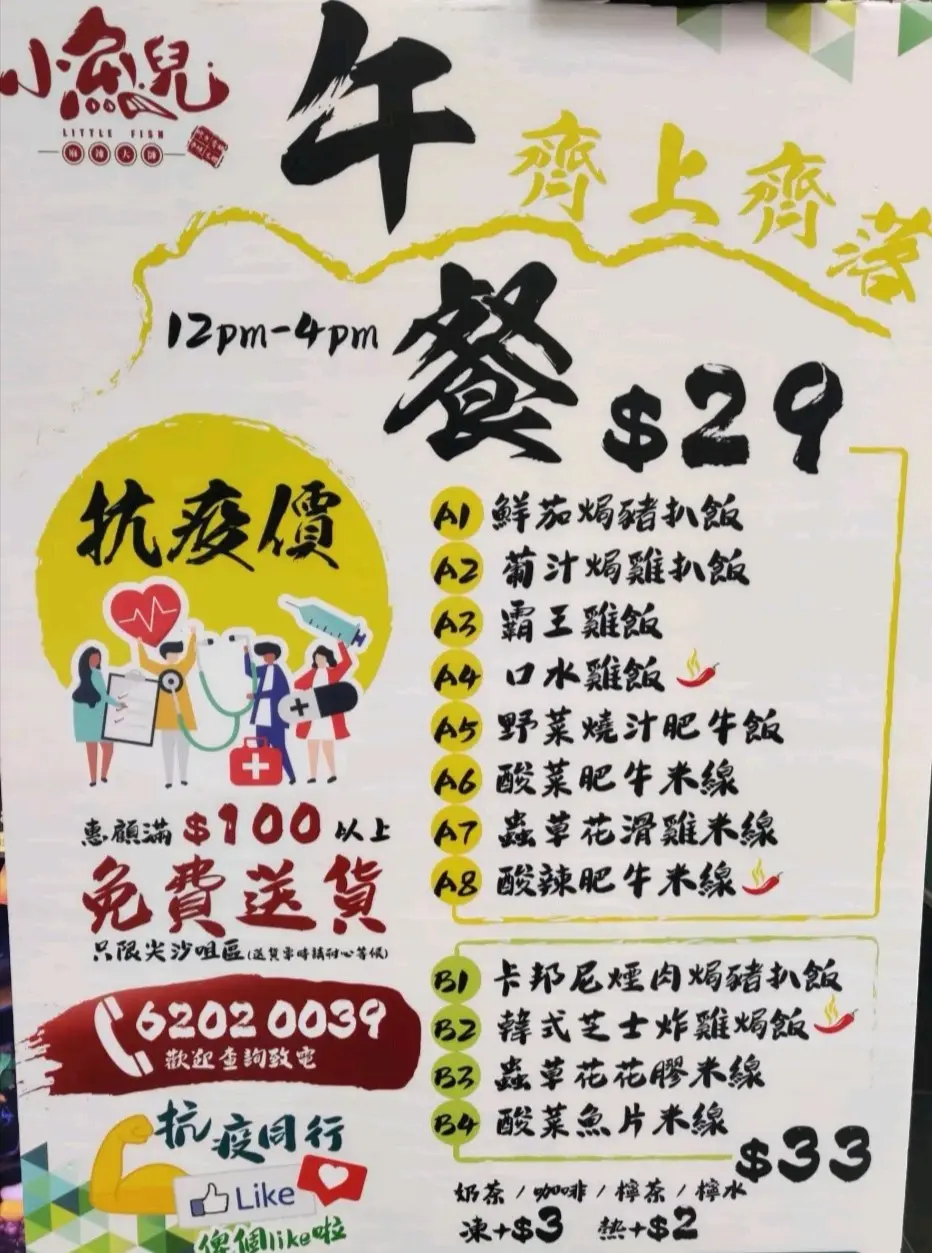 小魚兒
LITTLE FISH
麻辣大師
午
齊上齊落
餐
12pm-4pm
$29
抗疫價
A1 鮮茄焗豬扒飯
A2 葡汁焗雞扒飯
A3 霸王雞飯
A4 口水雞飯
A5 野菜燒汁肥牛飯
A6 酸菜肥牛米線
A7 蟲草花滑雞米線
A8 酸辣肥牛米線
惠顧滿$100以上
免費送貨
只限尖沙咀區(送貨需時請耐心等候)
62020039
歡迎查詢致電
抗疫同行
Like
俾個like啦
B1 卡邦尼煙肉焗豬扒飯
B2 韓式芝士炸雞焗飯
B3 蟲草花花膠米線
B4 酸菜魚片米線
$33
奶茶/咖啡/檸茶/檸水
凍+$3 熱+$2